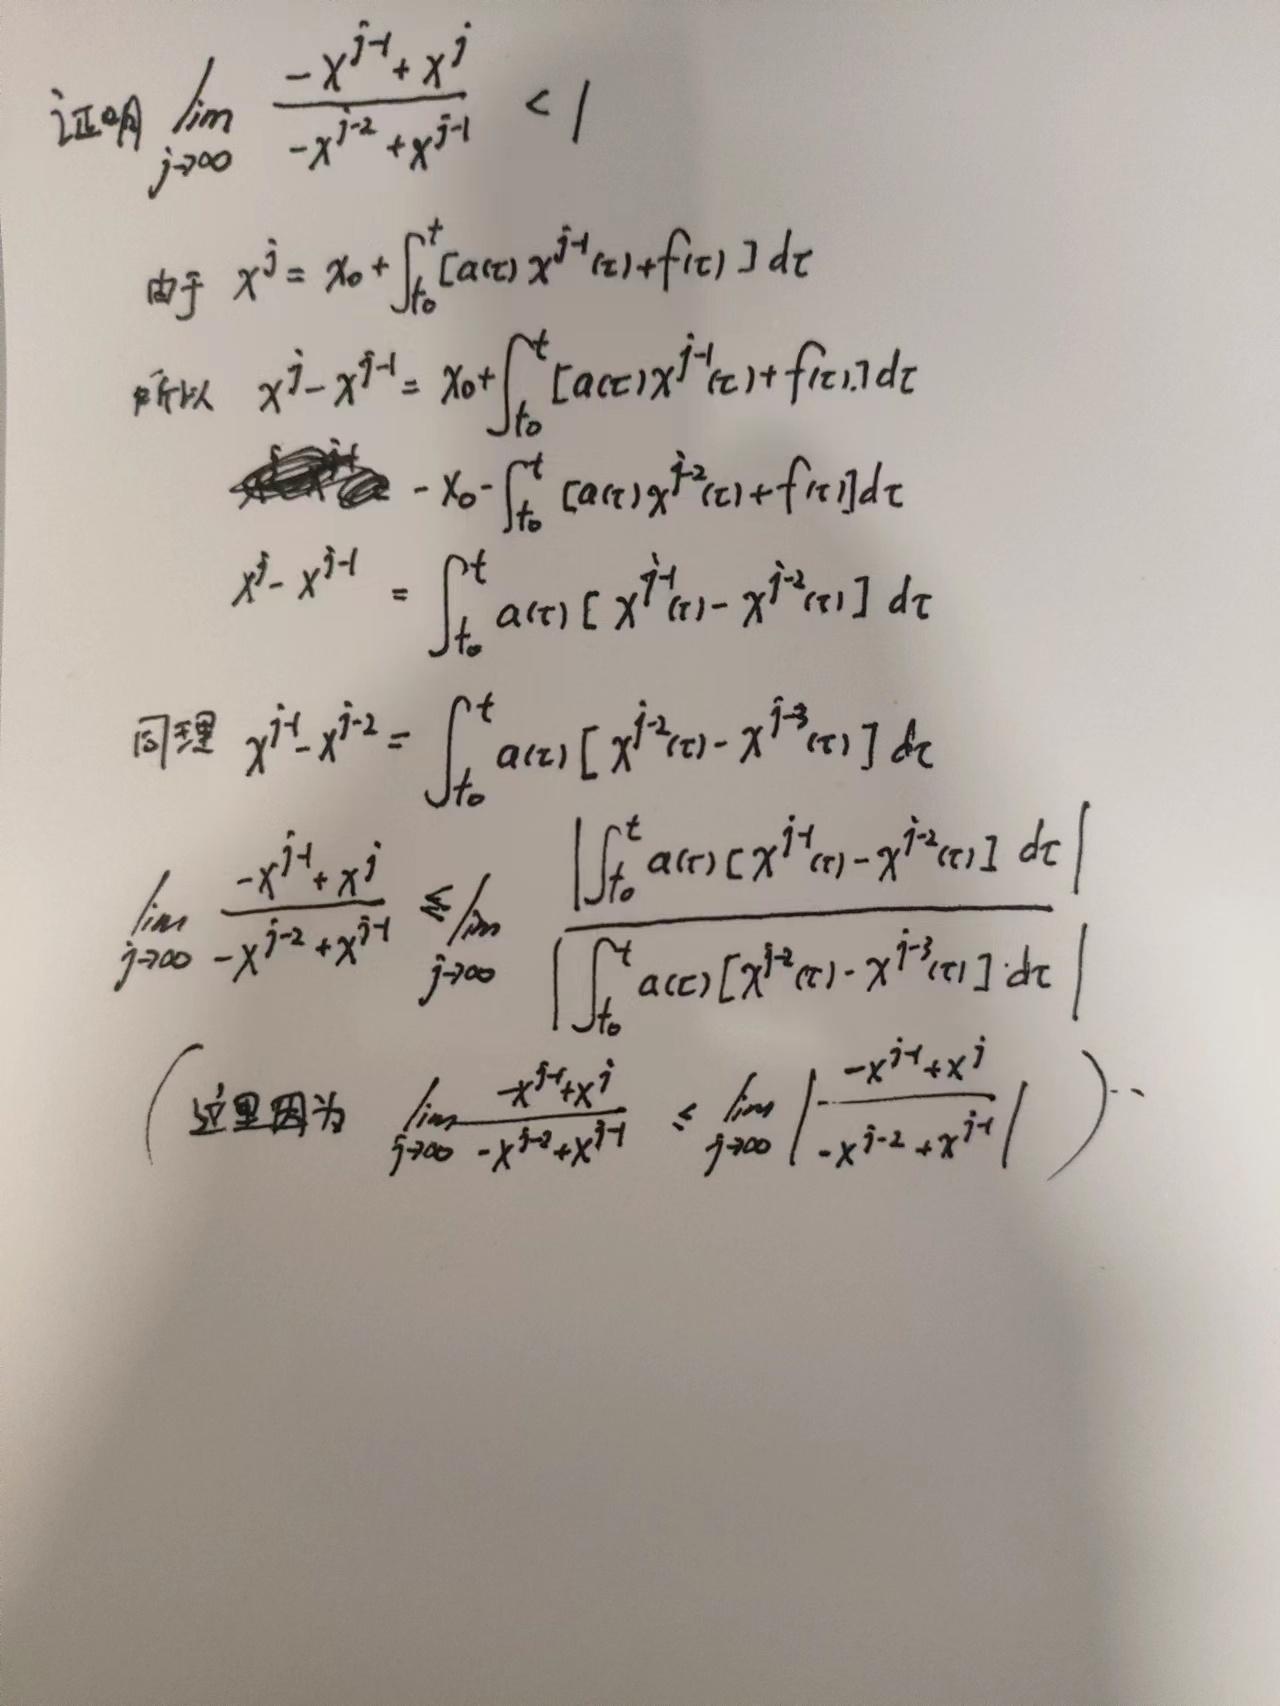 证明 lim_{j→∞} (-x^{j-1} + x^j)/(-x^{j-2} + x^{j-1}) < 1
由于 x^j = x₀ + ∫_{t₀}^{t} [a(τ) x^{j-1}(τ) + f(τ)] dτ
所以 x^j - x^{j-1} = x₀ + ∫_{t₀}^{t} [a(τ) x^{j-1}(τ) + f(τ)] dτ
- x₀ - ∫_{t₀}^{t} [a(τ) x^{j-2}(τ) + f(τ)] dτ
x^j - x^{j-1} = ∫_{t₀}^{t} a(τ) [x^{j-1}(τ) - x^{j-2}(τ)] dτ
同理 x^{j-1} - x^{j-2} = ∫_{t₀}^{t} a(τ) [x^{j-2}(τ) - x^{j-3}(τ)] dτ
lim_{j→∞} (-x^{j-1} + x^j)/(-x^{j-2} + x^{j-1}) ≤ lim_{j→∞} |∫_{t₀}^{t} a(τ) [x^{j-1}(τ) - x^{j-2}(τ)] dτ| / |∫_{t₀}^{t} a(τ) [x^{j-2}(τ) - x^{j-3}(τ)] dτ|
(这里因为 lim_{j→∞} (-x^{j-1} + x^j)/(-x^{j-2} + x^{j-1}) ≤ lim_{j→∞} |(-x^{j-1} + x^j)/(-x^{j-2} + x^{j-1})|)..